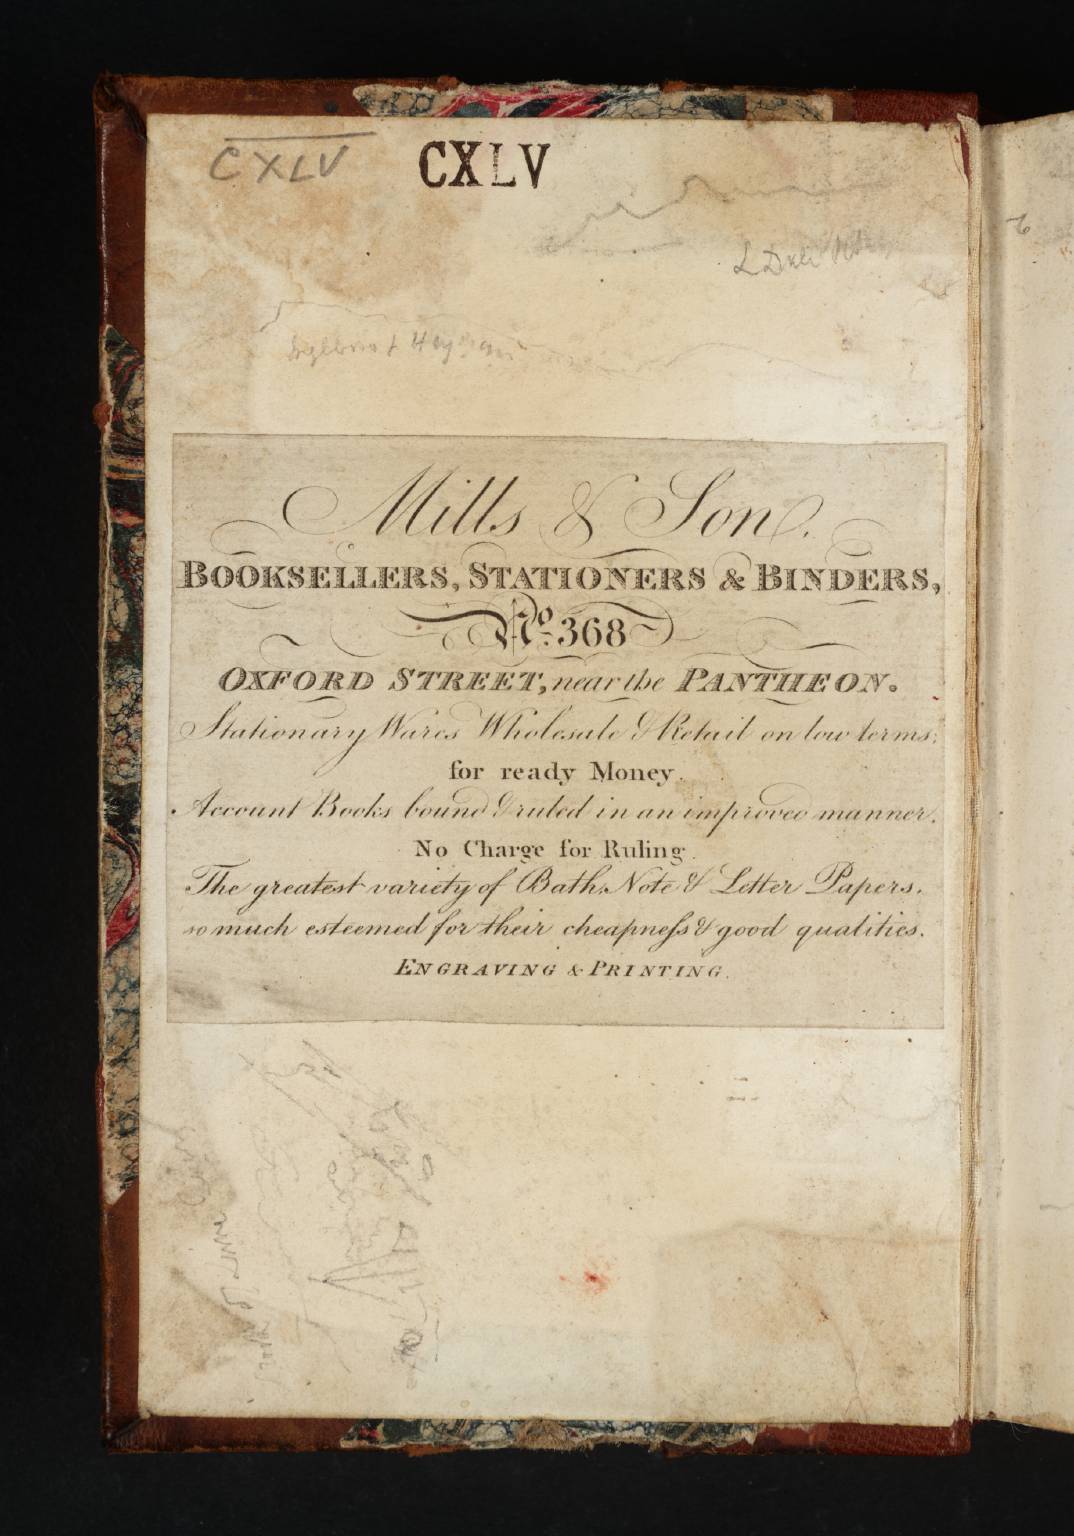 CXLV CXLV
Mills & Son.
BOOKSELLERS, STATIONERS & BINDERS,
No. 368
OXFORD STREET, near the PANTHEON.
Stationary Wares Wholesale & Retail on low terms,
for ready Money.
Account Books bound & ruled in an improved manner.
No Charge for Ruling.
The greatest variety of Bath, Note & Letter Papers,
so much esteemed for their cheapneſs & good qualities.
ENGRAVING & PRINTING.